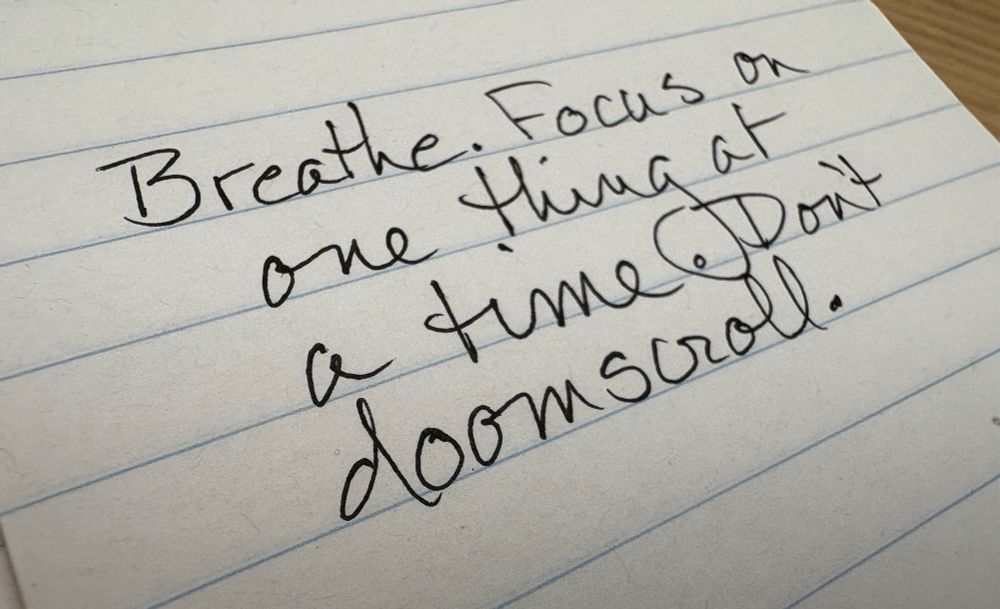 Breathe. Focus on
one thing at
a time. Don't
doomscroll.